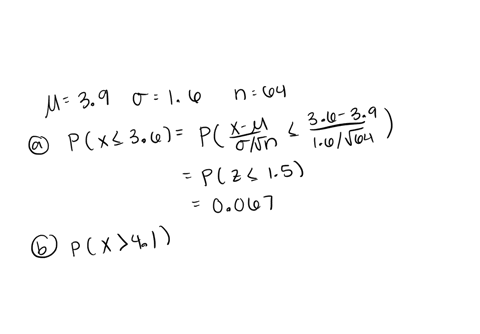 μ = 3.9 σ = 1.6 n = 64
(a) P(x ≤ 3.6) = P((x-μ)/(σ/√n) ≤ (3.6-3.9)/(1.6/√64))
= P(z ≤ 1.5)
= 0.067
(b) P(X > 4.1)